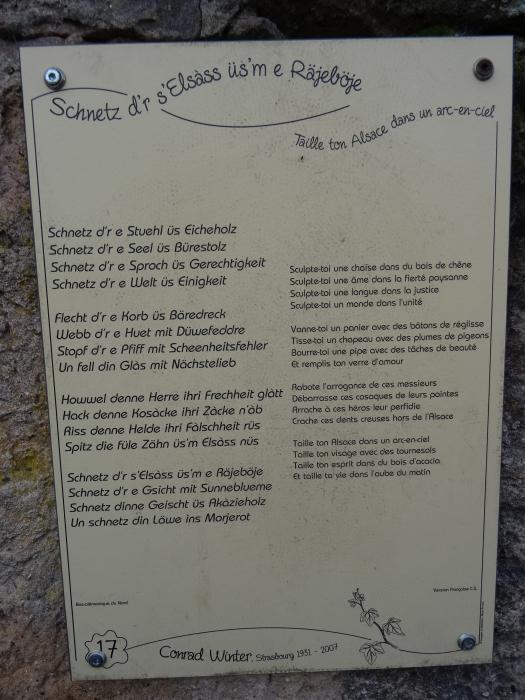 Schnetz d'r s'Elsàss üs'm e Räjeböje
Taille ton Alsace dans un arc-en-ciel
Schnetz d'r e Stuehl üs Eicheholz
Schnetz d'r e Seel üs Bürestolz
Schnetz d'r e Sproch üs Gerechtigkeit
Schnetz d'r e Welt üs Einigkeit
Flecht d'r e Korb üs Bäredreck
Webb d'r e Huet mit Düwefeddre
Stopf d'r e Pfiff mit Scheenheitsfehler
Un fell din Glàs mit Nächstelieb
Howwel denne Herre ihri Frechheit glàtt
Hack denne Kosàcke ihri Zàcke n'àb
Riss denne Helde ihri Fàlschheit rüs
Spitz die füle Zähn üs'm Elsàss nüs
Schnetz d'r s'Elsàss üs'm e Räjeböje
Schnetz d'r e Gsicht mit Sunneblueme
Schnetz dinne Geischt üs Akàzieholz
Un schnetz din Läwe ins Morjerot
Sculpte-toi une chaise dans du bois de chêne
Sculpte-toi une âme dans la fierté paysanne
Sculpte-toi une langue dans la justice
Sculpte-toi un monde dans l'unité
Vanne-toi un panier avec des bâtons de réglisse
Tisse-toi un chapeau avec des plumes de pigeons
Bourre-toi une pipe avec des tâches de beauté
Et remplis ton verre d'amour
Rabote l'arrogance de ces messieurs
Débarrasse ces cosaques de leurs pointes
Arrache à ces héros leur perfidie
Crache ces dents creuses hors de l'Alsace
Taille ton Alsace dans un arc-en-ciel
Taille ton visage avec des tournesols
Taille ton esprit dans du bois d'acacia
Et taille ta vie dans l'aube du matin
Bas-alémanique du Nord
Version Française C.S.
17
Conrad Winter, Strasbourg 1931 - 2007